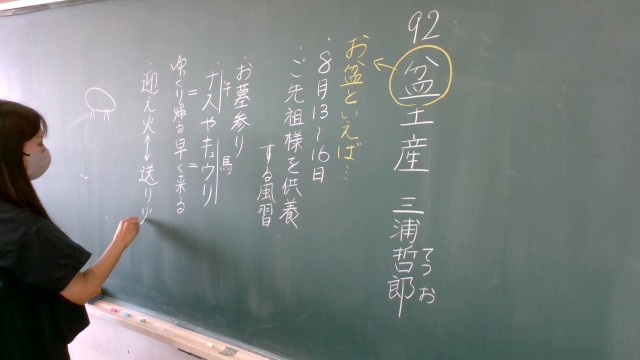 92
盆土産 三浦哲郎
てつお
お盆といえば…
・8月13~16日
・ご先祖様を供養
する風習
・お墓参り
・ナスやキュウリ
牛 馬
= =
ゆっくり帰る 早く来る
・迎え火↔送り火